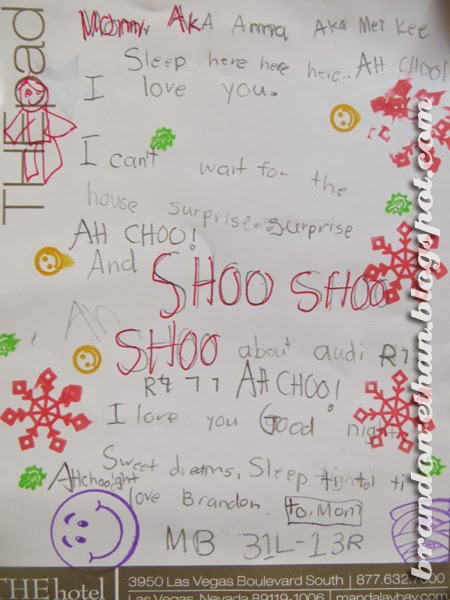 THEpad
Mommy AKA Amma AKA Mei Kee
Sleep here here here.. AH CHOO!
I love you.
I can't wait for the
house surprise. surprise
AH CHOO!
And SHOO SHOO
Ah
SHOO about audi R7
R7 77 AH CHOO!
I love you Good night
Sweet dreams, Sleep tight
love Brandon. to, Mom
MB 31L-13R
THEhotel
3950 Las Vegas Boulevard South | 877.632.7900
Las Vegas, Nevada 89119-1006 | mandalaybay.com
brandon-ethan.blogspot.com